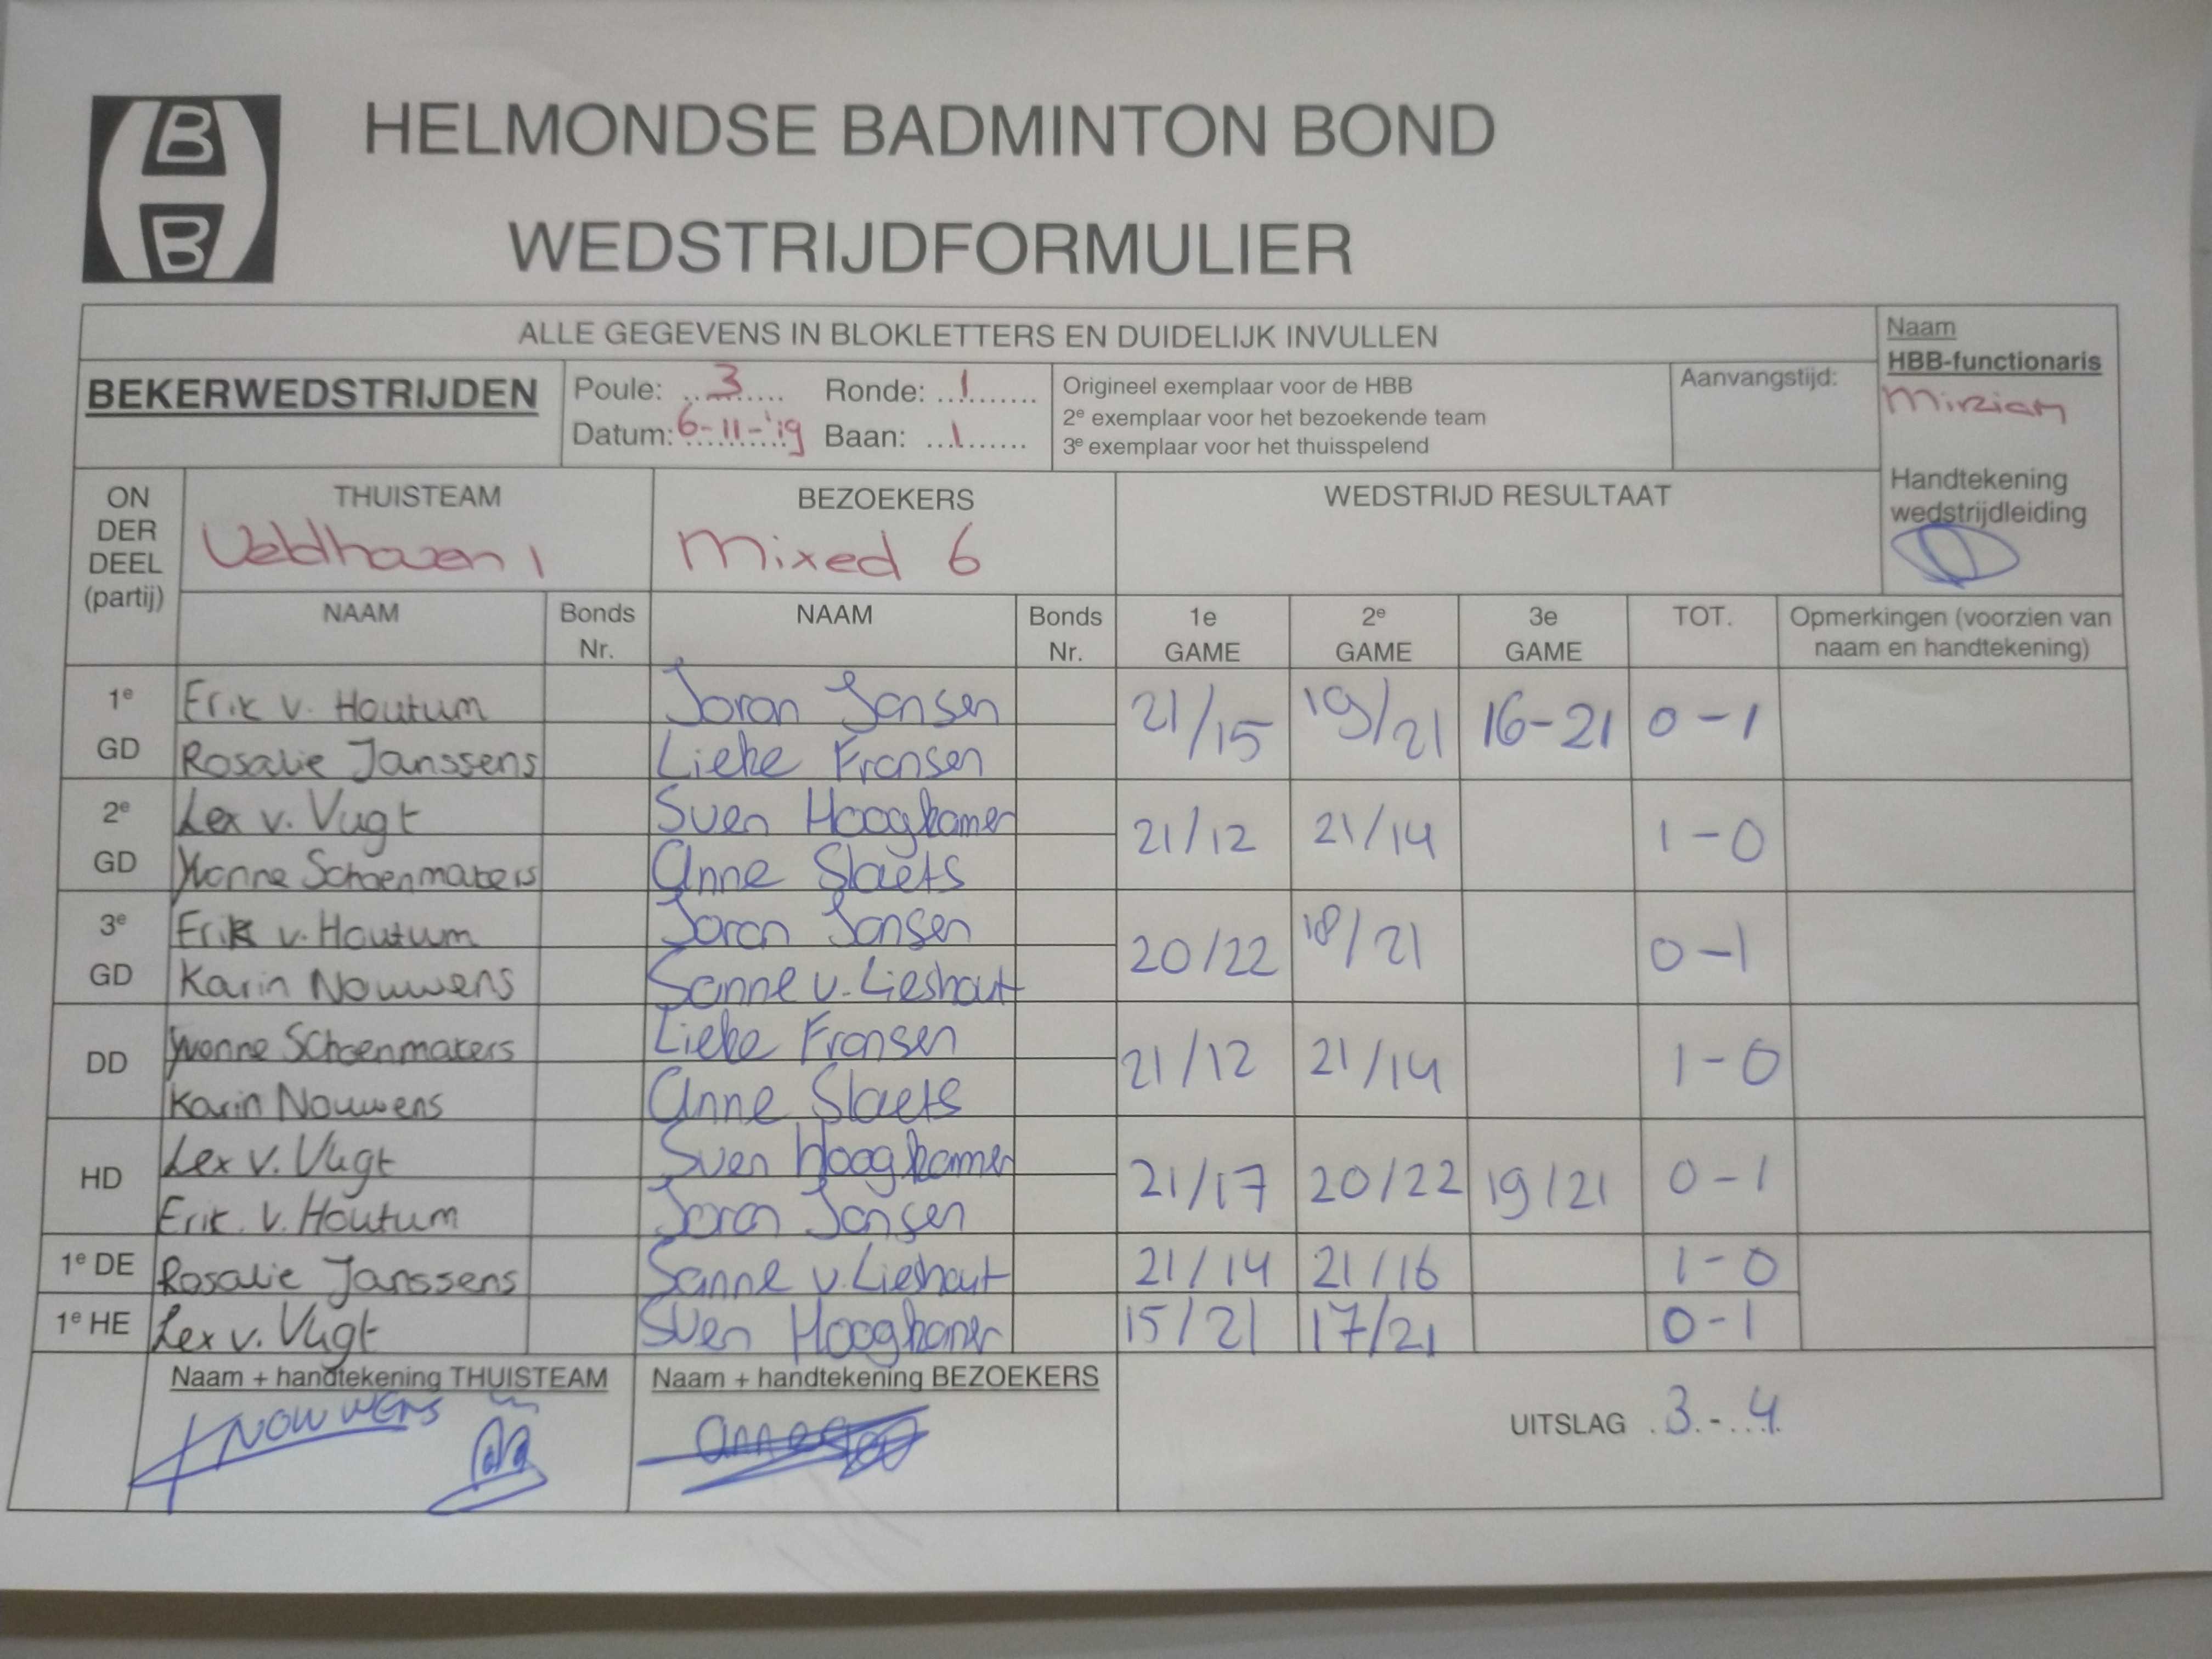 B
B
HELMONDSE BADMINTON BOND
WEDSTRIJDFORMULIER
ALLE GEGEVENS IN BLOKLETTERS EN DUIDELIJK INVULLEN
Naam
HBB-functionaris
Miriam
BEKERWEDSTRIJDEN
Poule: 3 Ronde: 1
Datum: 6-11-'19 Baan: 1
Origineel exemplaar voor de HBB
2e exemplaar voor het bezoekende team
3e exemplaar voor het thuisspelend
Aanvangstijd:
Handtekening
wedstrijdleiding
ON
DER
DEEL
(partij)
THUISTEAM
Veldhoven 1
BEZOEKERS
Mixed 6
WEDSTRIJD RESULTAAT
NAAM Bonds Nr. NAAM Bonds Nr. 1e GAME 2e GAME 3e GAME TOT. Opmerkingen (voorzien van naam en handtekening)
1e Erik v. Houtum Joran Jansen 21/15 19/21 16-21 0-1
GD Rosalie Janssens Lieke Fransen
2e Lex v. Vugt Sven Hoogkamer 21/12 21/14 1-0
GD Yvonne Schoenmakers Anne Slaets
3e Erik v. Houtum Joran Jansen 20/22 18/21 0-1
GD Karin Nouwens Sanne v. Lieshout
DD Yvonne Schoenmakers Lieke Fransen 21/12 21/14 1-0
Karin Nouwens Anne Slaets
HD Lex v. Vugt Sven Hoogkamer 21/17 20/22 19/21 0-1
Erik. v. Houtum Joran Jansen
1e DE Rosalie Janssens Sanne v. Lieshout 21/14 21/16 1-0
1e HE Lex v. Vugt Sven Hoogkamer 15/21 17/21 0-1
Naam + handtekening THUISTEAM Naam + handtekening BEZOEKERS
Nouwens
UITSLAG 3 - 4